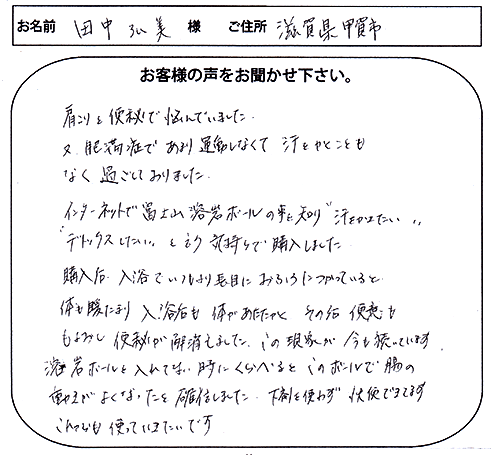 お名前 田中 弘美 様 ご住所 滋賀県甲賀市
お客様の声をお聞かせ下さい。
肩こりと便秘で悩んでいました。
又、肥満症であまり運動しなくて 汗をかくことも
なく 過ごしておりました。
インターネットで富士山溶岩ボールの事を知り"汗をかきたい"
"デトックスしたい"と言う気持ちで購入しました。
購入后、入浴でいつもより長目におふろにつかっていると
体も暖たまり 入浴后も 体があたたかく その后 便意も
もよおし 便秘が解消しました。この現象が 今も続いています。
溶岩ボールを入れてない時にくらべると このボールで腸の
動きがよくなったと確信しました。下剤を使わず 快便できてます
これからも使っていきたいです